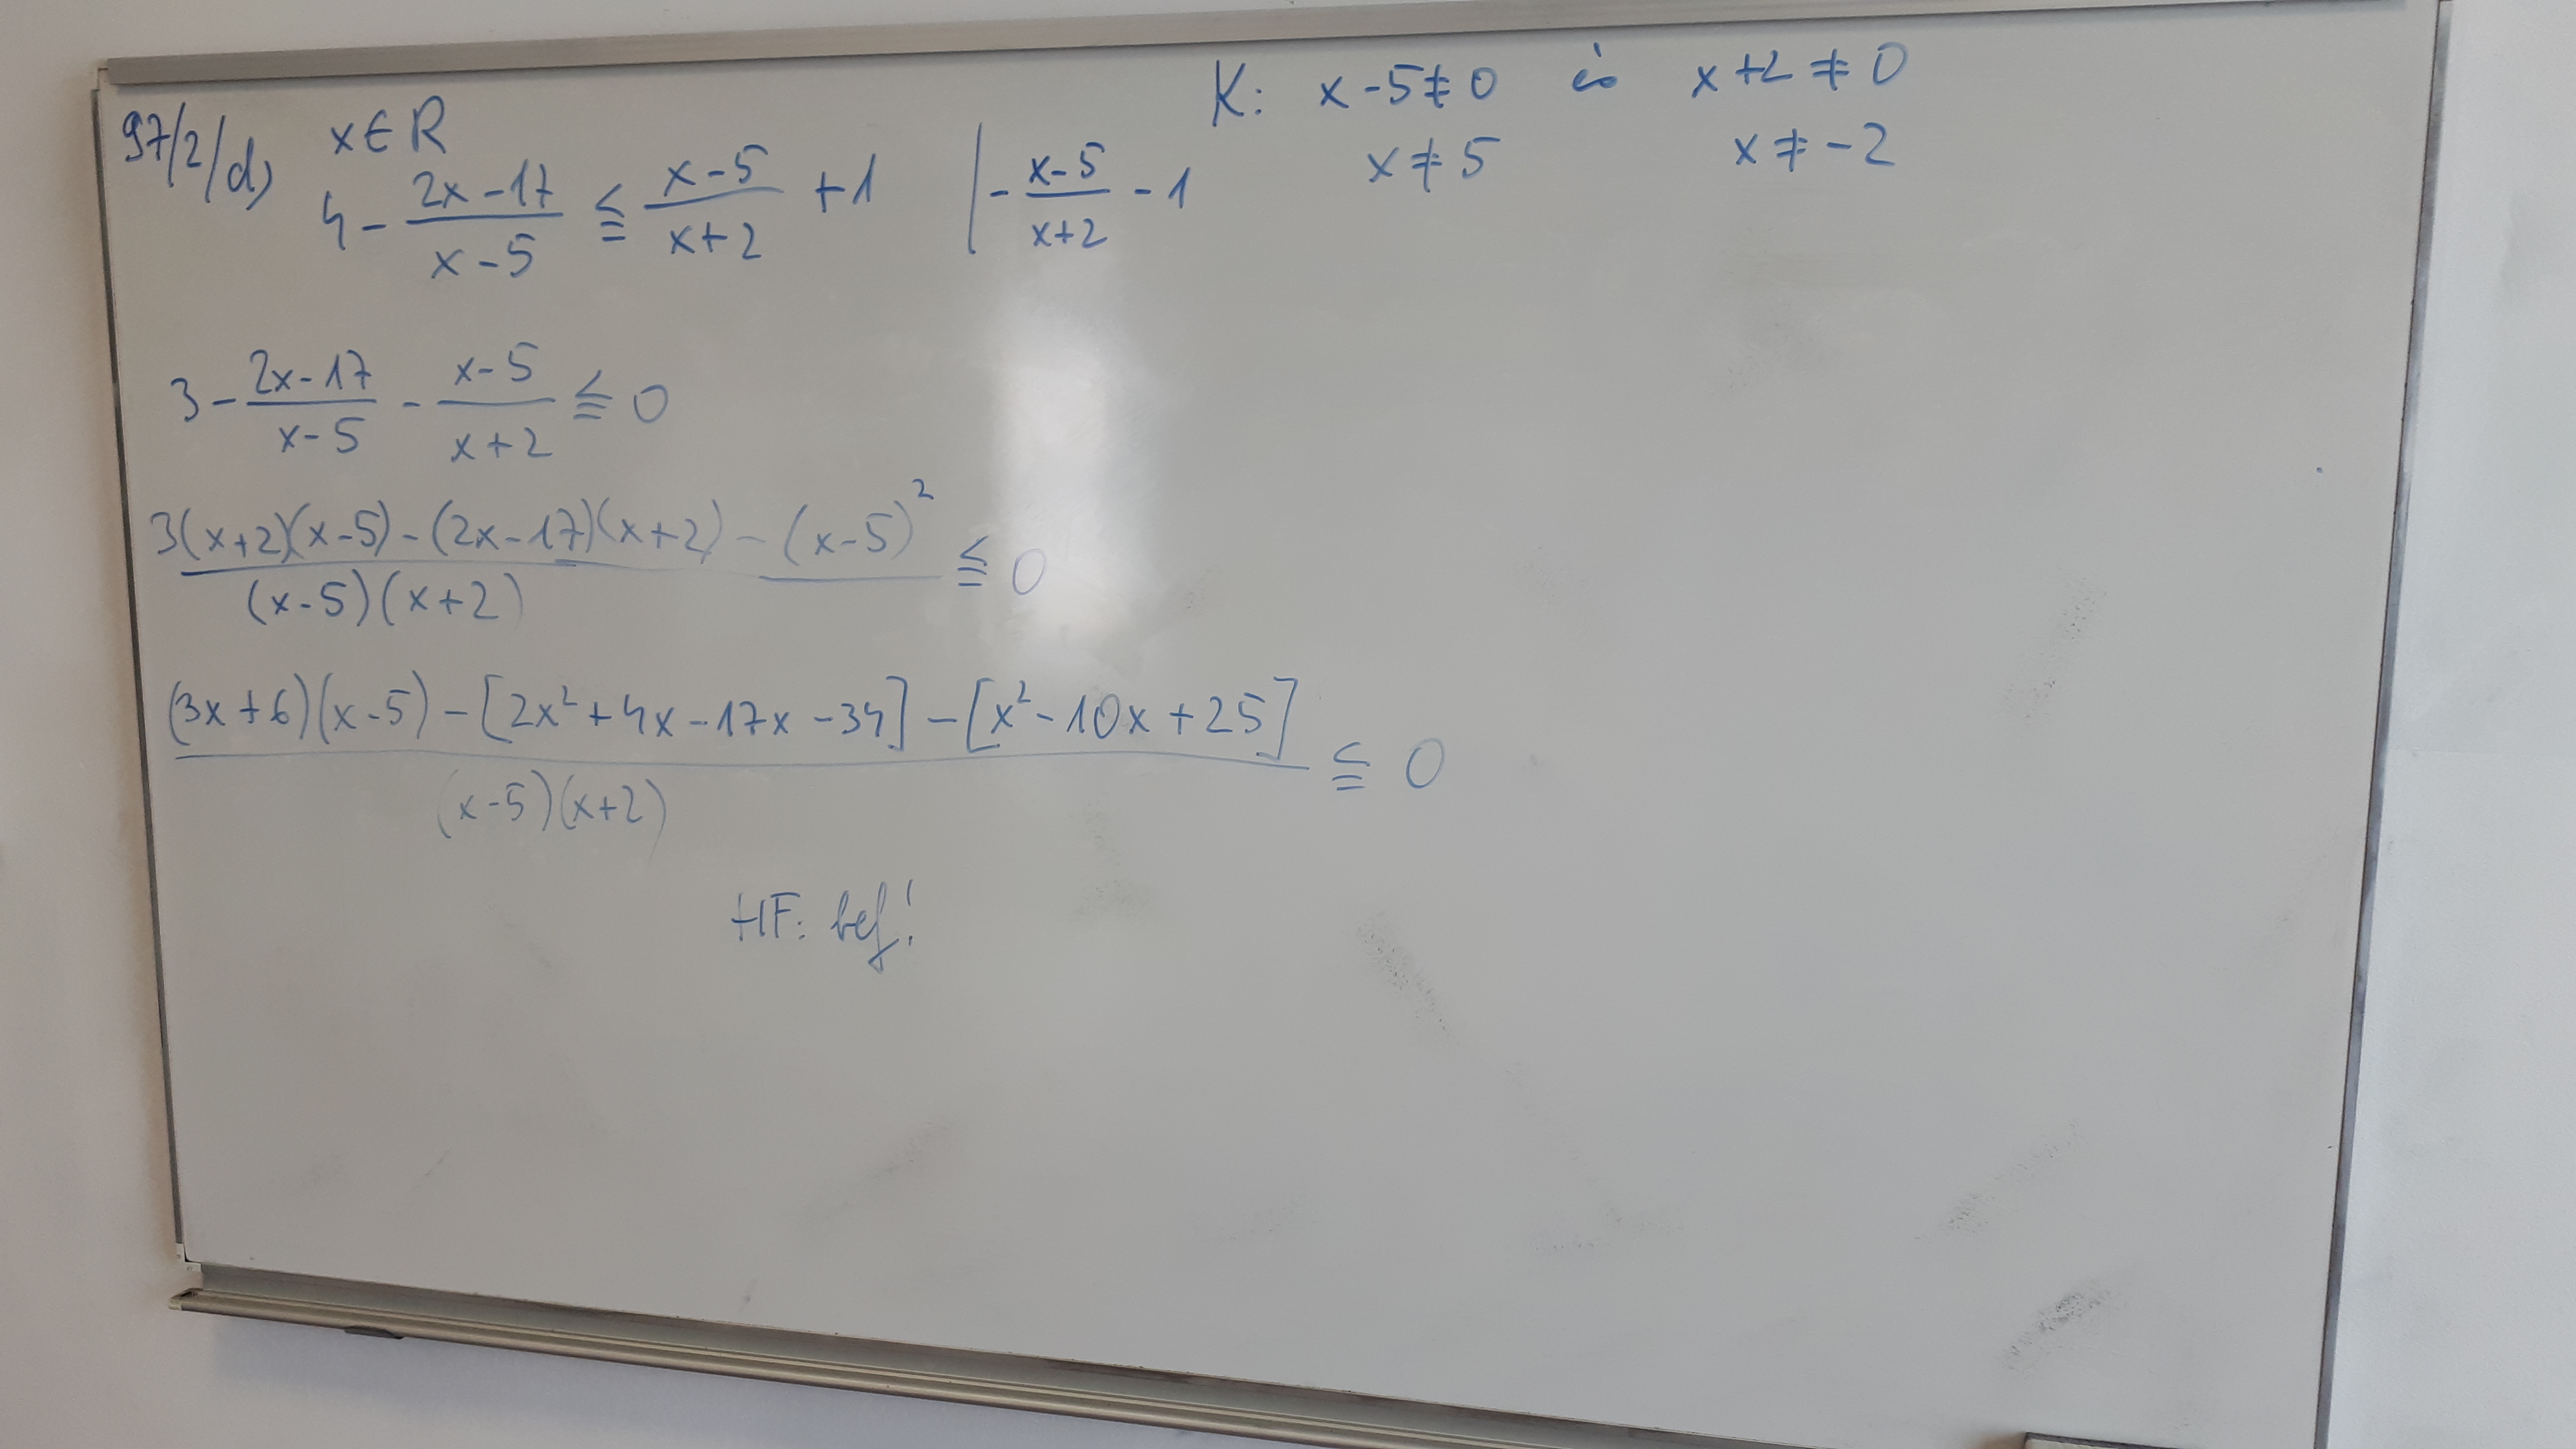 97/2/d) x∈R
4 - (2x-17)/(x-5) ≦ (x-5)/(x+2) + 1 | - (x-5)/(x+2) - 1
K: x-5≠0 és x+2≠0
x≠5 x≠-2
3 - (2x-17)/(x-5) - (x-5)/(x+2) ≦ 0
3(x+2)(x-5) - (2x-17)(x+2) - (x-5)² ≦ 0
(x-5)(x+2)
(3x+6)(x-5) - [2x²+4x-17x-34] - [x²-10x+25] ≦ 0
(x-5)(x+2)
HF: bef!